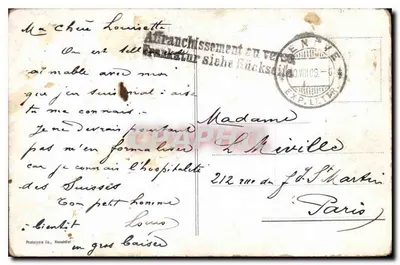 Ma Chère Louisette
On est
aimable avec moi
que j'en suis
me connais.
Je ne devrais pourtant
pas m'en formaliser
car je connais l'hospitalité
des Suisses
Ton petit homme
à bientôt Louis
un gros baiser
Affranchissement au verso
Frankatur siehe Rückseite
GENÈVE
EXP. LETTR.
Madame
L Miville
212 rue du Fg St Martin
Paris